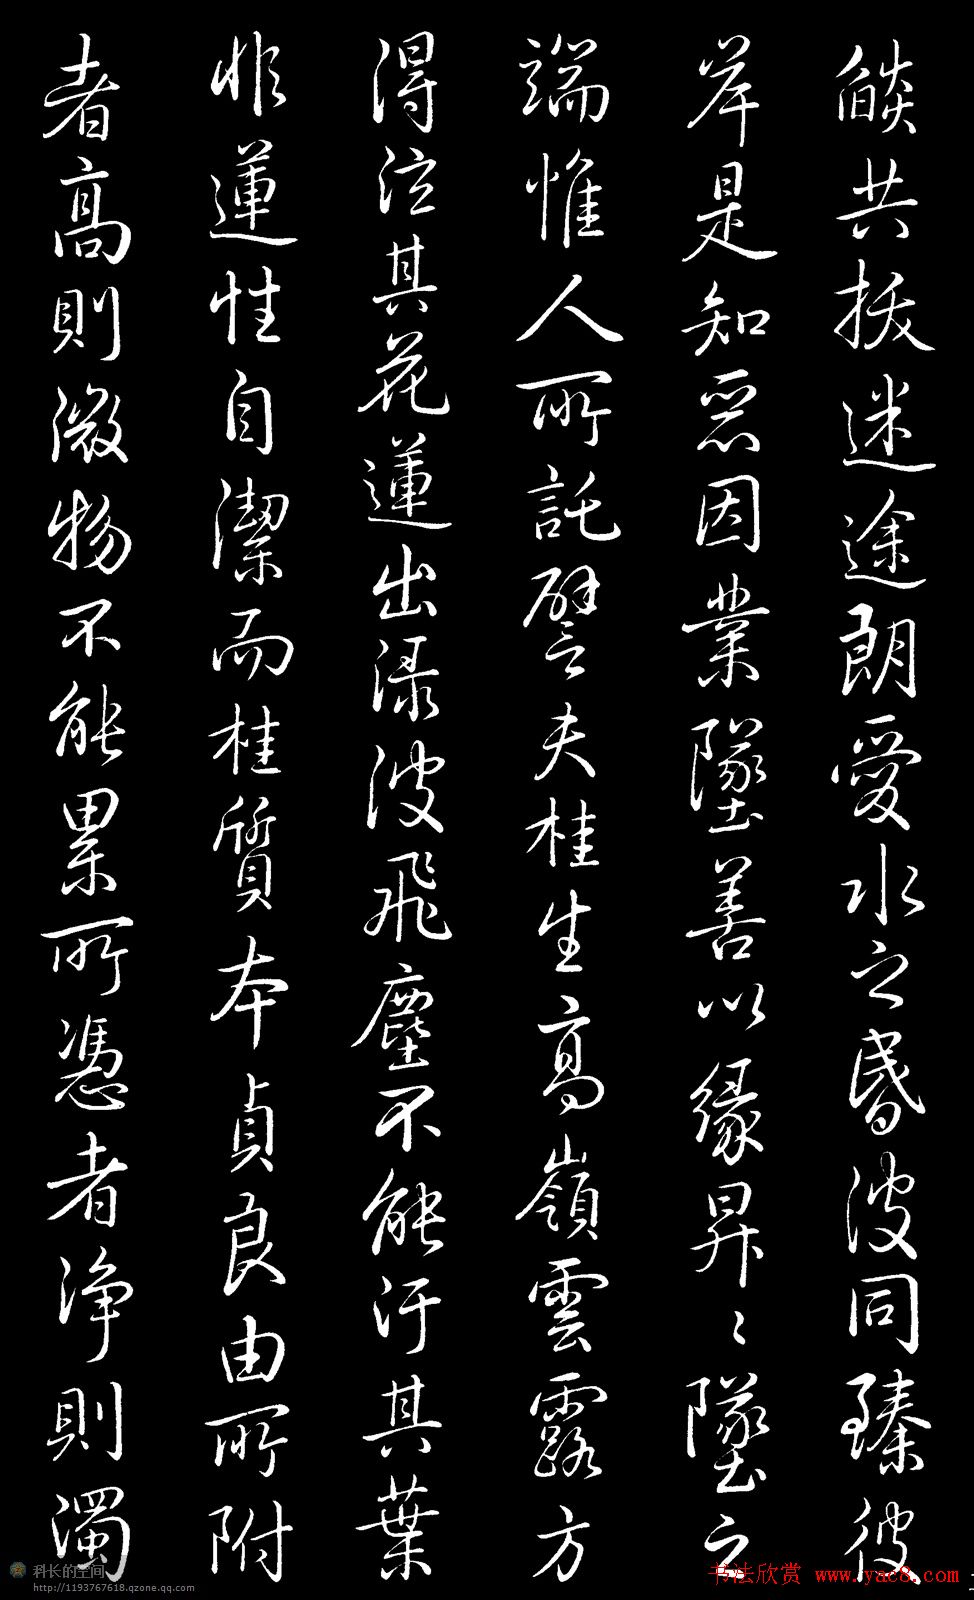 燄共拔迷途朗愛水之昏波同臻彼
岸是知惡因業墜善以緣昇昇墜之
端惟人所託譬夫桂生高嶺雲露方
得泫其花蓮出淥波飛塵不能汙其葉
非蓮性自潔而桂質本貞良由所附
者高則微物不能累所憑者淨則濁
科长的空间
http://1193767618.qzone.qq.com
书法欣赏 www.yac8.com